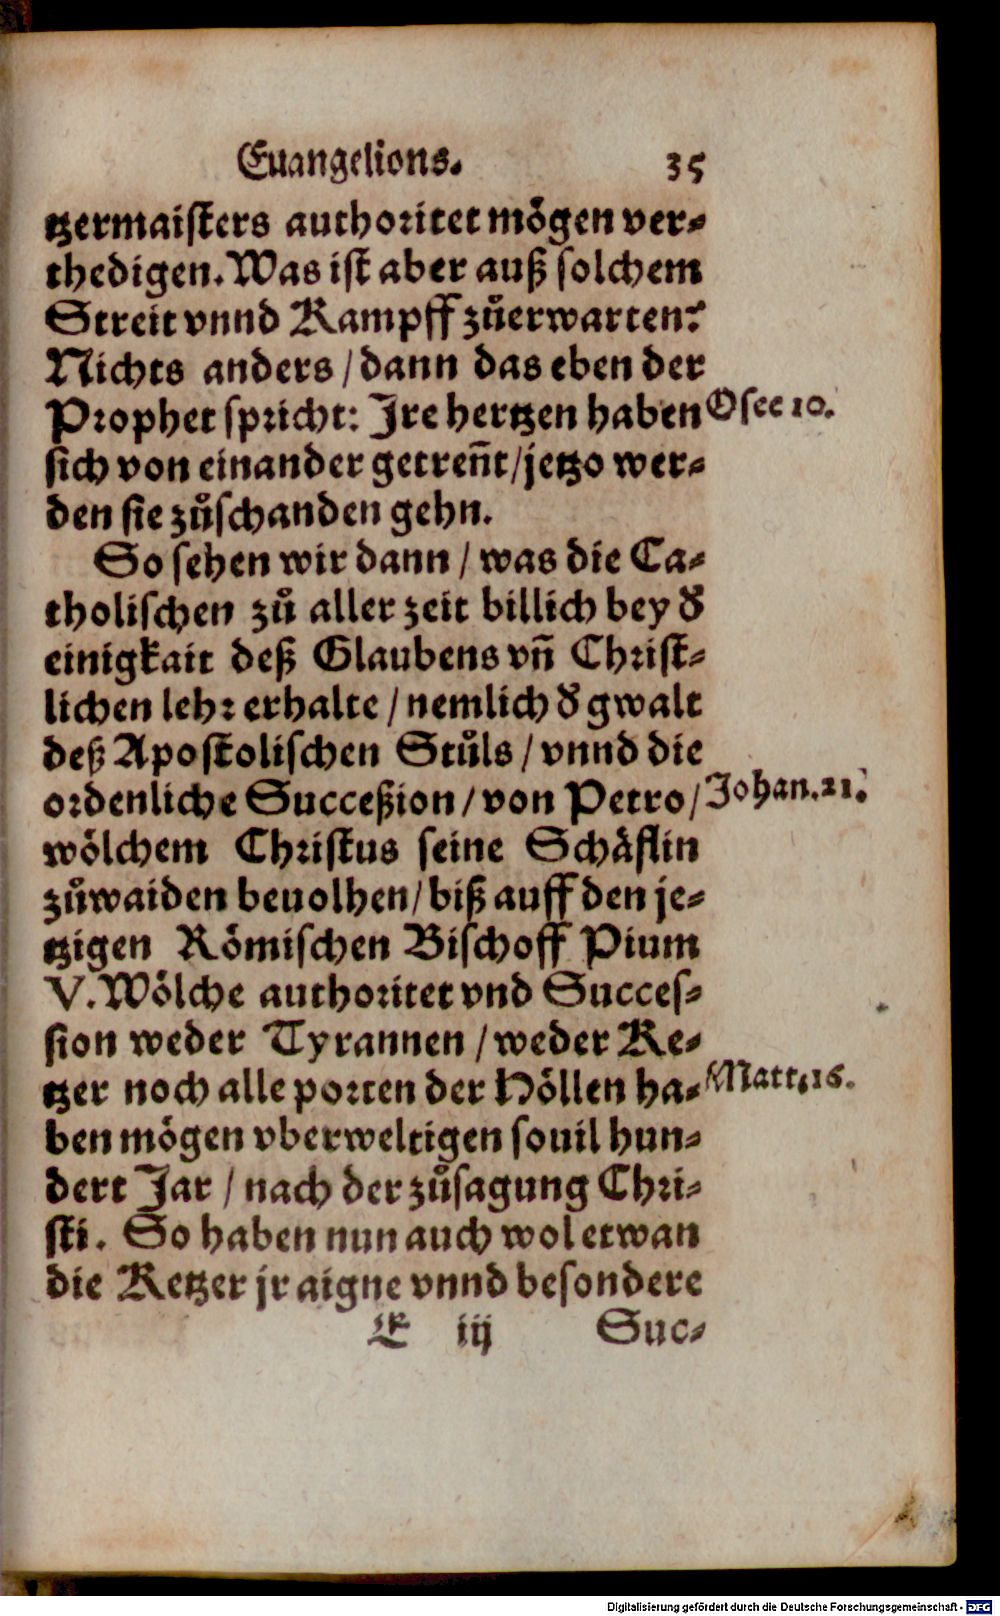 Euangelions. 35
tzermaisters authoritet mögen ver-
thedigen. Was ist aber auß solchem
Streit vnnd Kampff zůerwarten?
Nichts anders / dann das eben der
Prophet spricht: Jre hertzen haben Osee 10.
sich von einander getreñt / jetzo wer-
den sie zůschanden gehn.
So sehen wir dann / was die Ca-
tholischen zů aller zeit billich bey d̕
einigkait deß Glaubens vñ Christ-
lichen lehr erhalte / nemlich d̕ gwalt
deß Apostolischen Stůls / vnnd die
ordenliche Succeßion / von Petro / Johan. 21.
wölchem Christus seine Schäflin
zůwaiden beuolhen / biß auff den je-
tzigen Römischen Bischoff Pium
V. Wölche authoritet vnd Succes-
sion weder Tyrannen / weder Ke-
tzer noch alle porten der Höllen ha- Matt. 16.
ben mögen vberweltigen souil hun-
dert Jar / nach der zůsagung Chri-
sti. So haben nun auch wol etwan
die Ketzer jr aigne vnnd besondere
E iij Suc-
Digitalisierung gefördert durch die Deutsche Forschungsgemeinschaft - DFG